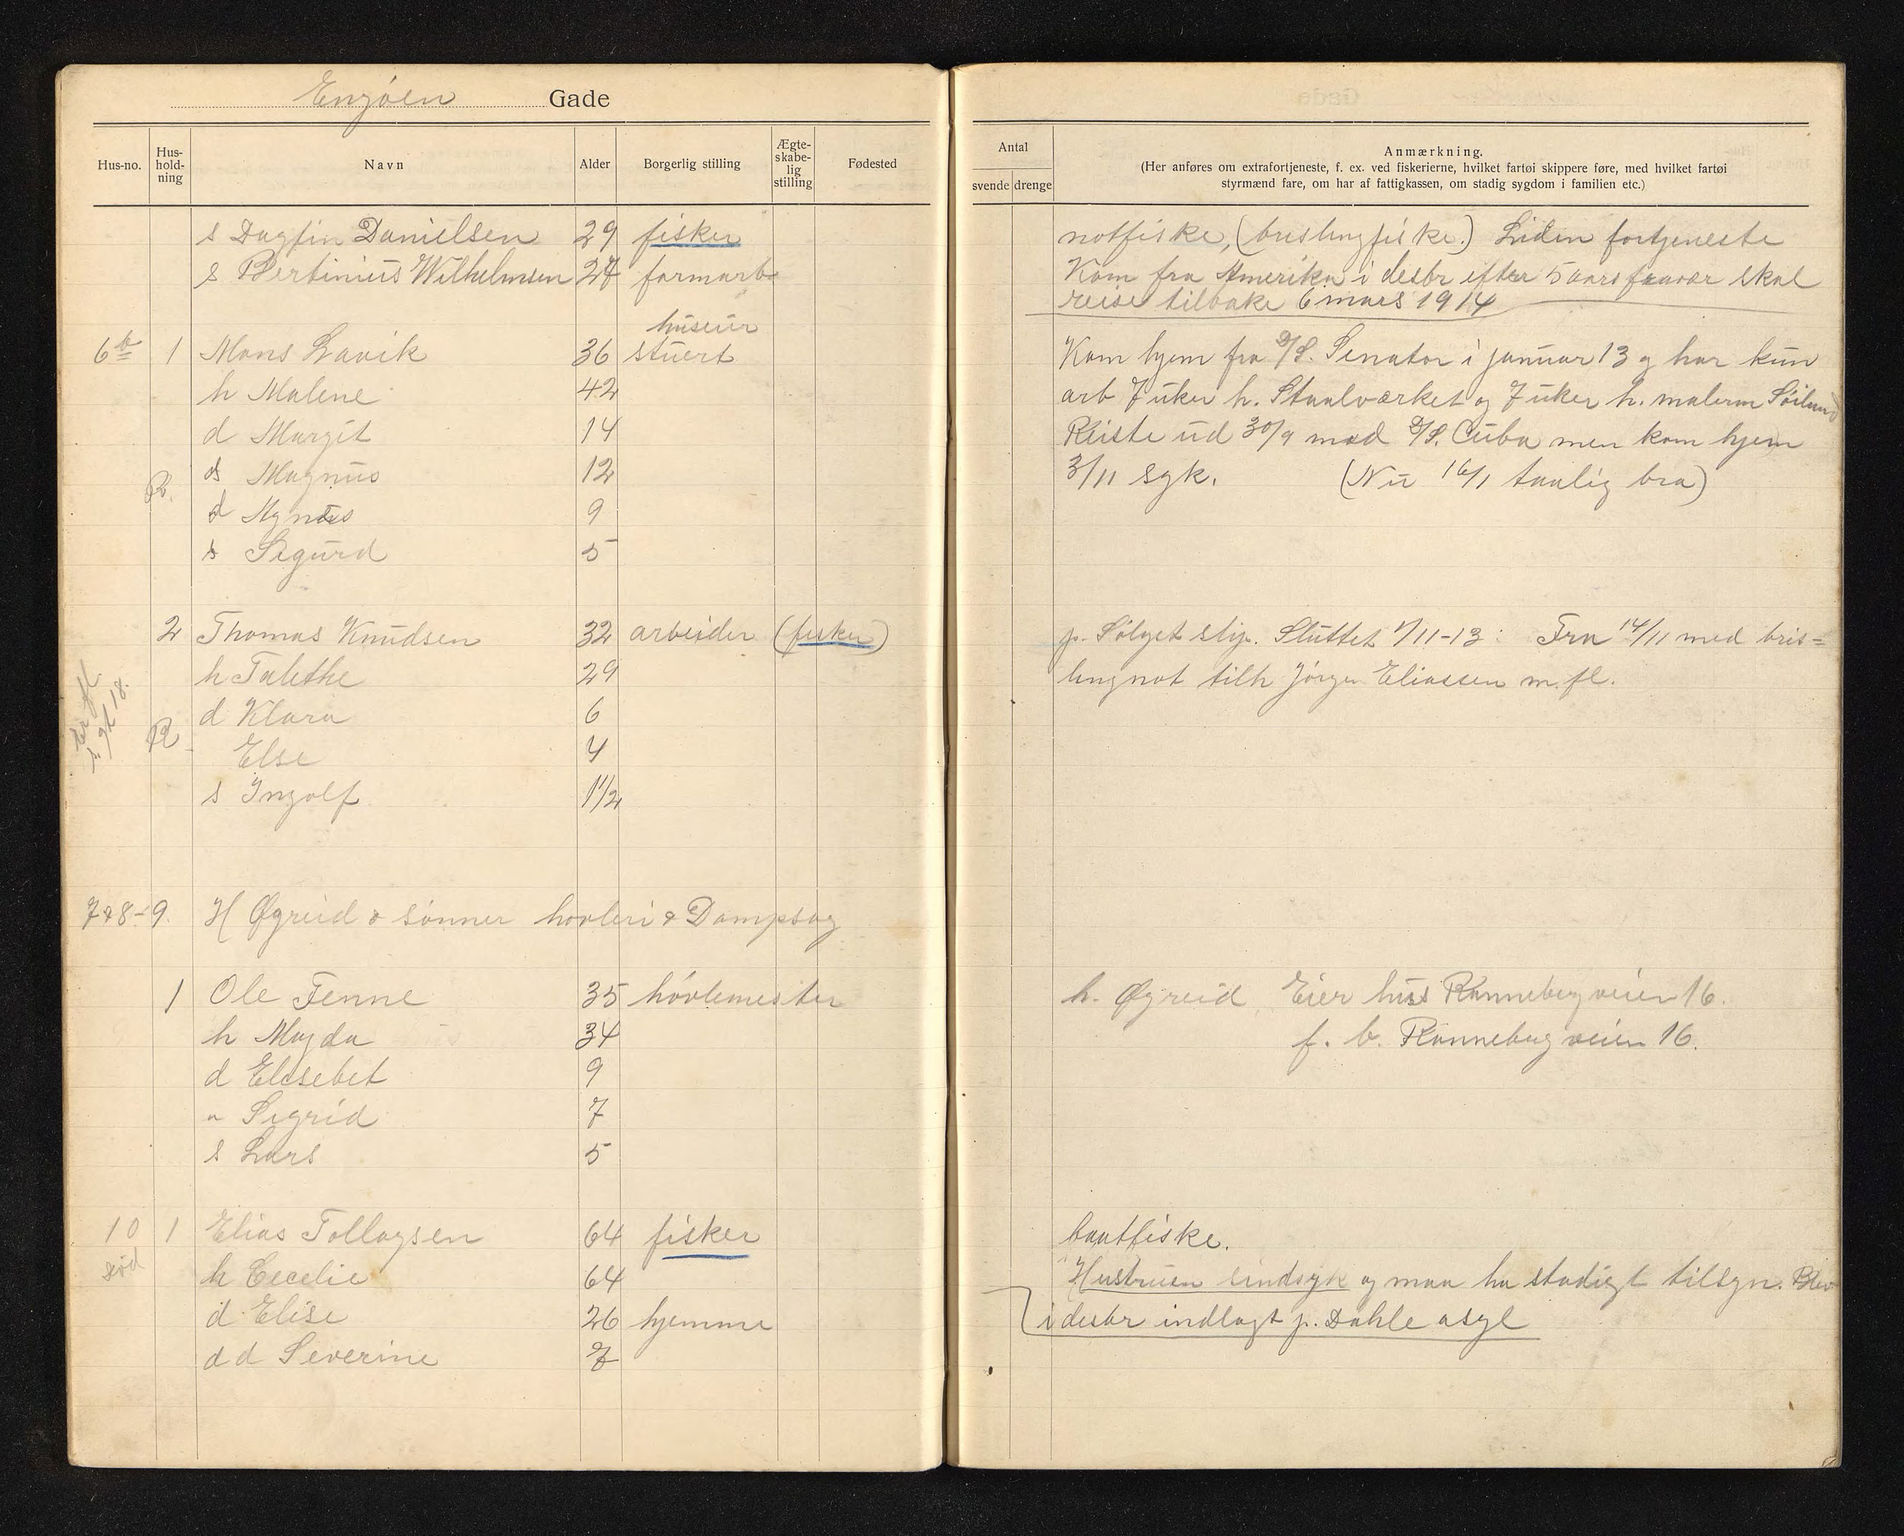 Engöen Gade
Hus-no. Hus-hold-ning Navn Alder Borgerlig stilling Ægte-skabe-lig stilling Fødested
s Dagfin Danielsen 29 fisker
s Bertinius Wilhelmsen 27 farmarb
huseier
6b 1 Mons Lavik 36 stuert
h Malene 42
d Margit 14
s Magnus 12
R.
d Agnes 9
s Sigurd 5
2 Thomas Knudsen 32 arbeider (fisker)
h Talethe 29
d Klara 6
R
Else 4
s Ingolf 1 1/2
7 & 8 - 9. H Øgreid & sønner høvleri & Dampsag
1 Ole Tenne 35 høvlemester
h Magda 34
d Elisebet 9
" Sigrid 7
s Lars 5
10 1 Elias Tollagsen 64 fisker
sød
h Cecelie 64
d Elise 26 hjemme
d d Severine 7
Antal
svende drenge
Anmærkning.
(Her anføres om extrafortjeneste, f. ex. ved fiskerierne, hvilket fartøi skippere føre, med hvilket fartøi
styrmænd fare, om har af fattigkassen, om stadig sygdom i familien etc.)
notfiske, (brislingfiske.) Liden fortjeneste
Kom fra Amerika i desbr efter 5 aars fravær skal
reise tilbake 6 mars 1914
Kom hjem fra D/S. Senator i januar 13 g har kun
arb 7 uker h. Staalværket og 7 uker h. malerm
Reiste ud 30/9 med D/S. Cuba men kom hjem
3/11 syk. (Nu 16/1 taalig bra)
p. Sølyst slip. Sluttet 1/11-13: Fra 14/11 med bris=
lingnot tilh Jørgen Eliassen m. fl.
h. Øgreid, Eier hus Rannebergveien 16.
f. b. Rannebergveien 16.
baatfiske.
Hustruen sindsyk og maa ha stadigt tilsyn. Blev
i desbr indlagt p. Dahle asyl